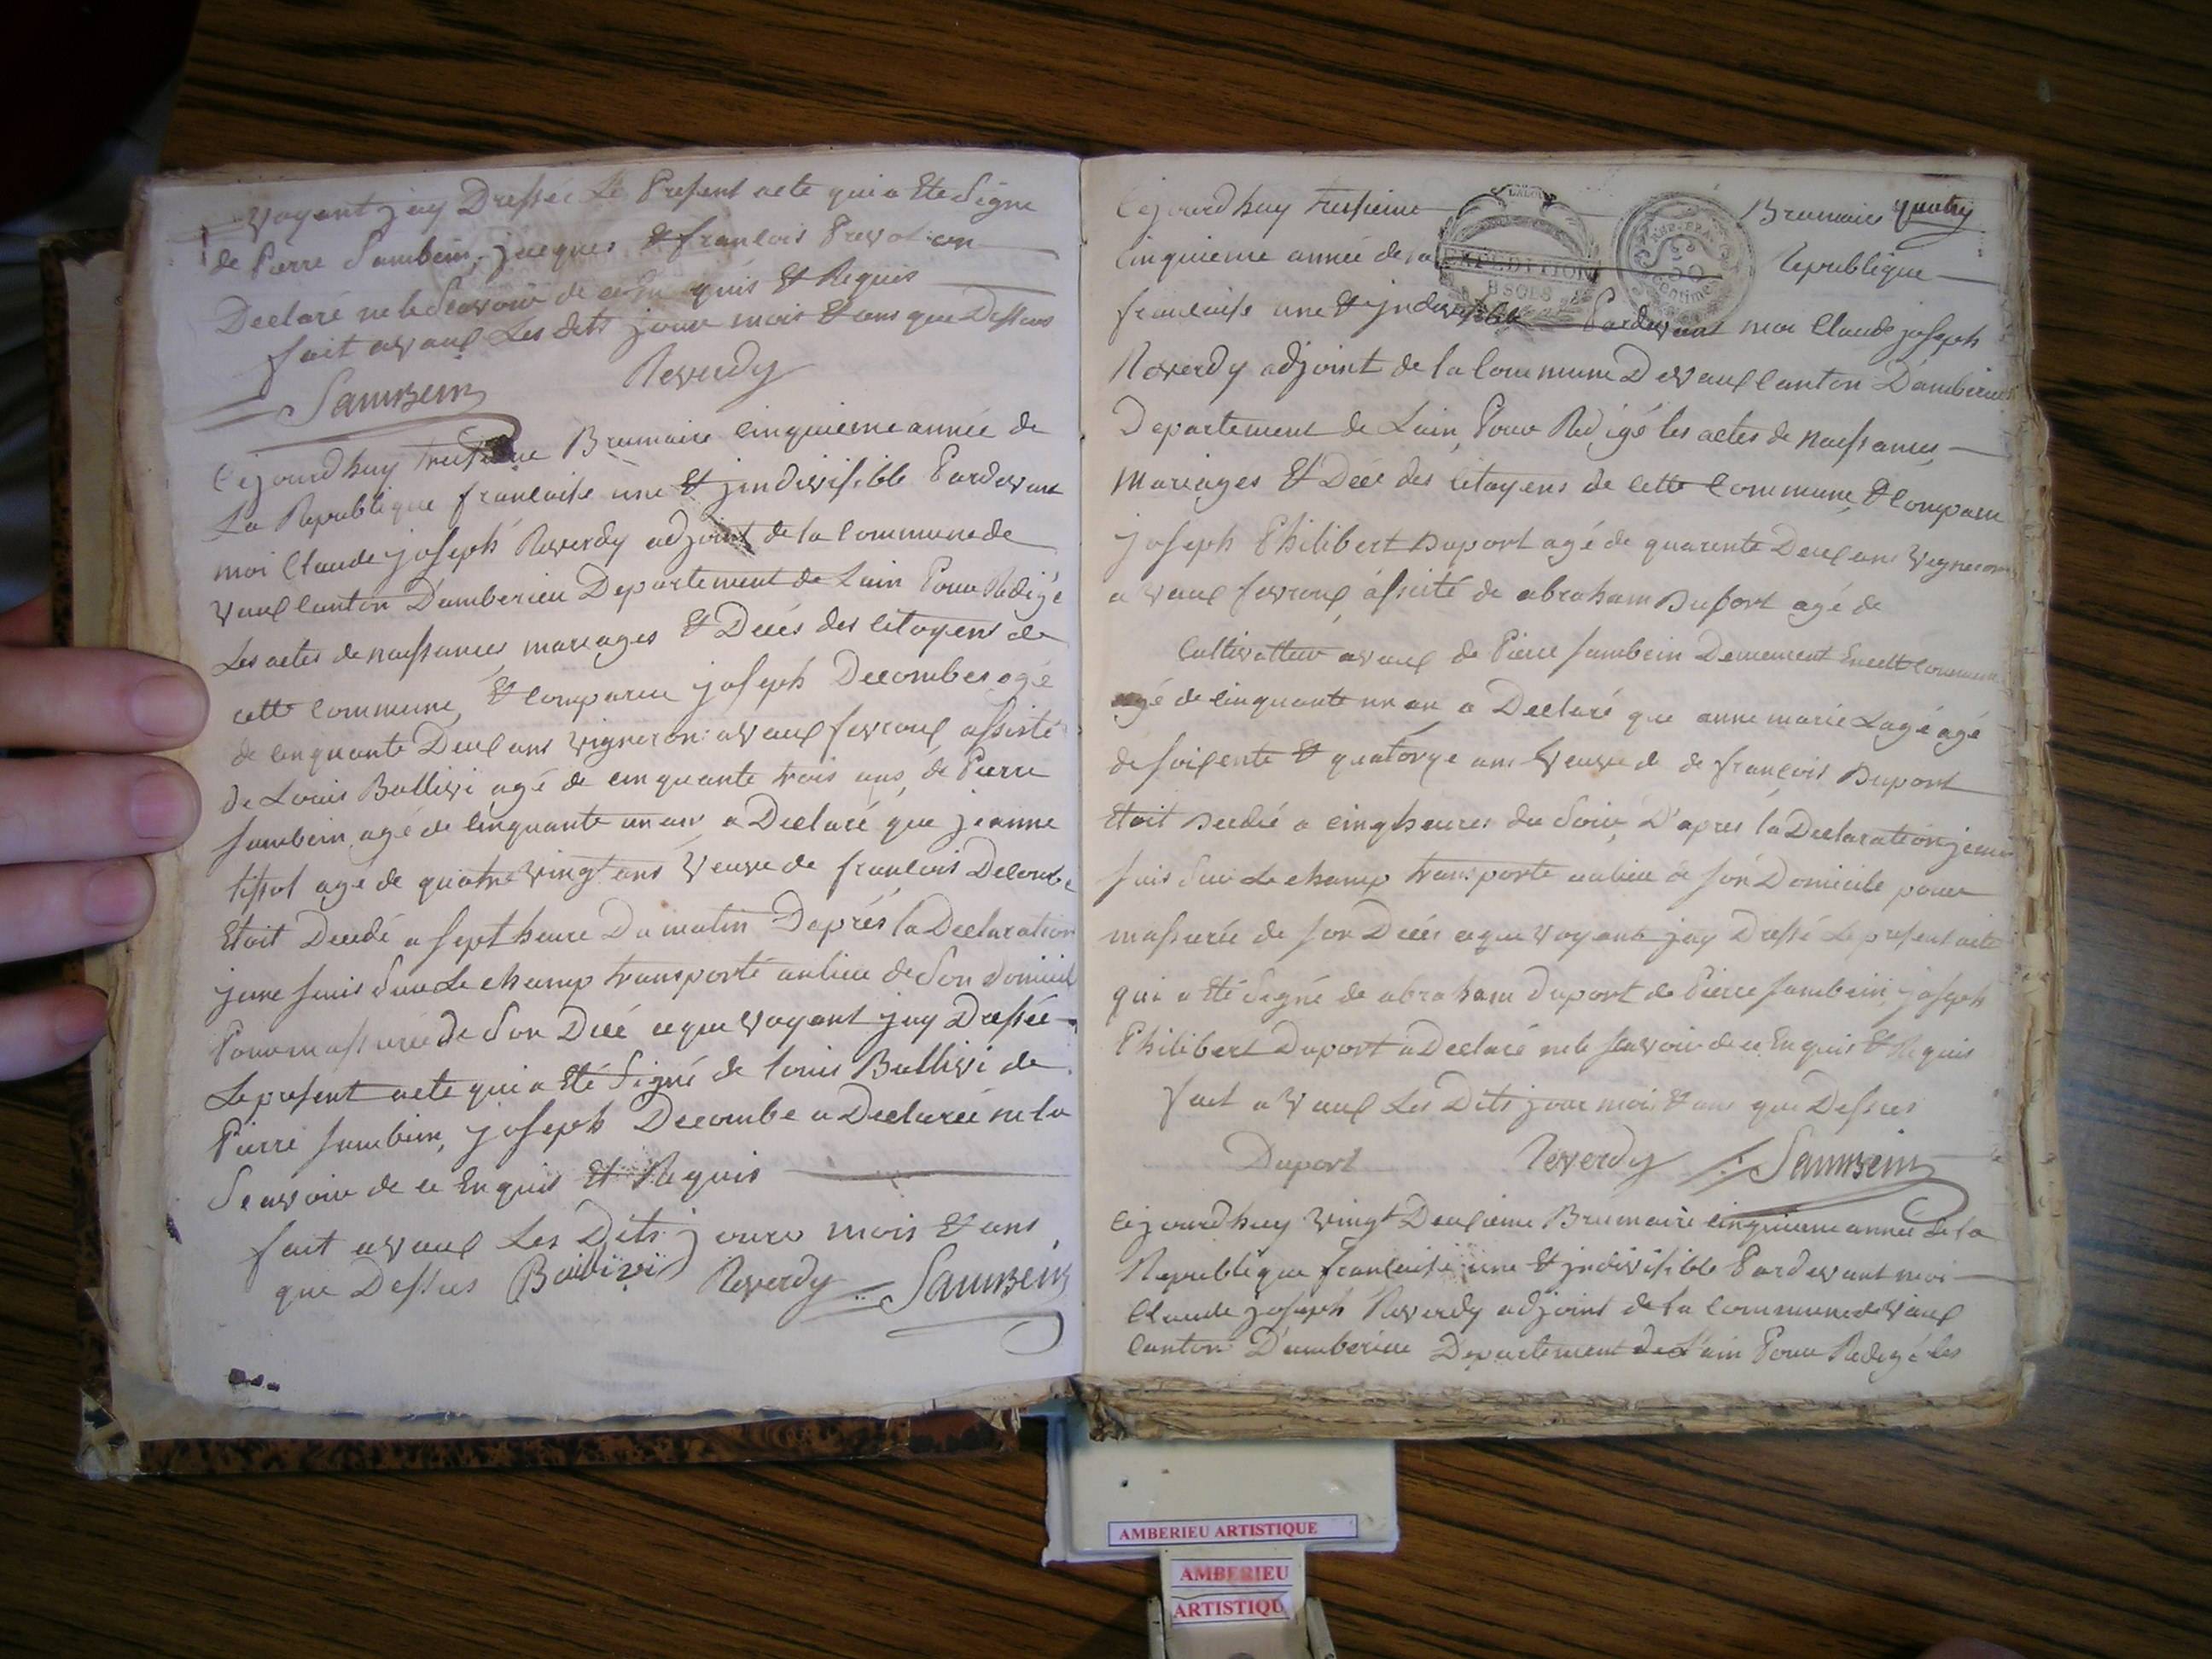 voyant jay Dressée Le Present acte qui a Ete Signe
de Pierre Sambein, jacques & francois Prevot on
Declaré ne le Scavoir de ce En quis & Requis
fait avaux Les dits jour mois & ans que Dessus
Sambein Reverdy
Cejourdhuy treisieme Brumaire cinquieme année de
La Republique francaise une & jndivisible Pardevant
moi Claude joseph Reverdy adjoint de la Commune de
vaux Canton D'amberieu Departement de Lain Pour Redigé
Les actes de naissances mariages & Decés des Citoyens de
cette Commune, & Comparu joseph Decombes agé
de cinquante Deux ans vigneron avaux fevroux assisté
de Louis Ballivi agé de cinquante trois ans, de Pierre
Sambein, agé de Cinquante un an, a Declaré que jeanne
tissot agé de quatre vingt ans Veuve de francois Decombe
Etoit Decedé a sept heure Du matin Daprés la Declaration
jeme suis Sur Le champ transporté au lieu de Son Domicil
Pour massurée de Son Decé ceque voyant jay Dressée
Le present acte qui a Eté Signé de Louis Ballivi de
Pierre Sambein, joseph Decombe a Declarée ne la
Scavoir de ce Enquis Et Requis
fait avaux Les Dits jours mois & ans
que Dessus Ballivi Reverdy Sambein
Cejourdhuy treisieme Brumaire quatry
Cinquieme année de la Republique
EXPEDITION
8 SOLS
REP. FRA.
50
centimes
francaise une & jndivisible Pardevant moi Claude joseph
Reverdy adjoint de la Commune Devaux Canton D'amberieu
Departement de Lain, Pour Redigé les actes de naissances,
Mariages & Decé des Citoyens de cette Commune, & Comparu
joseph Philibert Duport agé de quarente Deux ans Vigneron
a vaux fevroux, assisté de abraham Duport agé de
Cultivatteur avaux de Pierre Sambein Demeurant Encette Commune
agé de cinquante un an a Declaré que anne marie Lagé agé
de soixente & quatorze ans Veuve de francois Duport
Etoit Decedée a cinq heures du Soir, D'apres la Declaration jeme
suis Sur Le champ transporté au lieu de son Domicile pour
massurée de son Decés ceque voyant jay Dressé Le present acte
qui a Eté Signé de abraham Duport de Pierre Sambein, joseph
Philibert Duport a Declaré ne le Scavoir de ce En quis & Requis
fait a Vaux Les Dits jour mois & ans que Dessus
Duport Reverdy Sambein
Cejourdhuy vingt Deuxieme Brumaire cinquieme année de la
Republique francaise une & jndivisible Pardevant moi
Claude joseph Reverdy adjoint de la Commune de Vaux
Canton D'amberieu Departement de L'ain Pour Redigé les
AMBERIEU ARTISTIQUE
AMBERIEU
ARTISTIQU